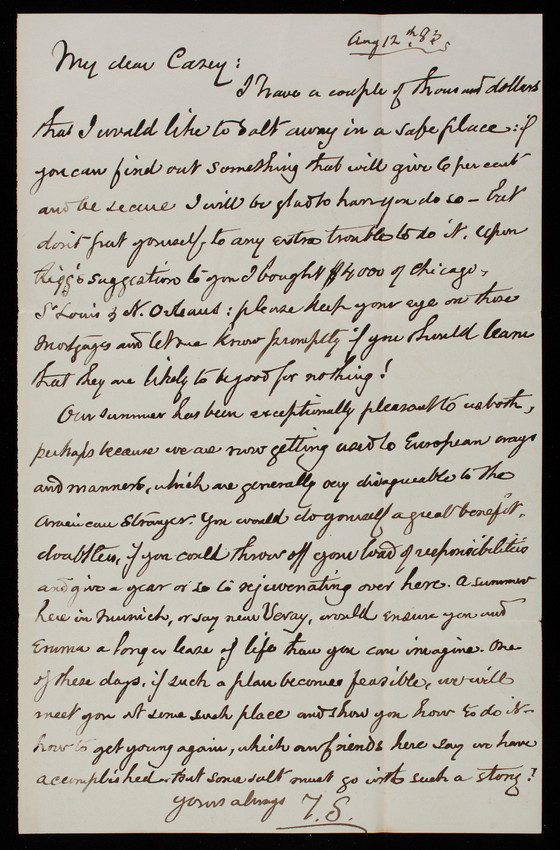 Aug 12th 83.
My dear Casey:
I have a couple of thousand dollars
that I would like to salt away in a safe place: if
you can find out something that will give 6 per cent
and be secure I will be glad to have you do so – but
don't put yourself to any extra trouble to do it. Upon
suggestion to you I bought $4000 of Chicago,
St Louis & N. Orleans: please keep your eye on those
mortgages and let me know promptly if you should learn
that they are likely to be good for nothing!
Our summer has been exceptionally pleasant to us both,
perhaps because we are now getting used to European ways
and manners, which are generally very disagreeable to the
American stranger. You would do yourself a great benefit,
doubtless, if you could throw off your load of responsibilities
and give a year or so to rejuvenating over here. A summer
here in Munich, or say near Vevay, would ensure you and
Emma a longer lease of life than you can imagine. One
of these days, if such a plan becomes feasible, we will
meet you at some such place and show you how to do it –
how to get young again, which our friends here say we have
accomplished – but some salt must go with such a story!
Yours always T. S.